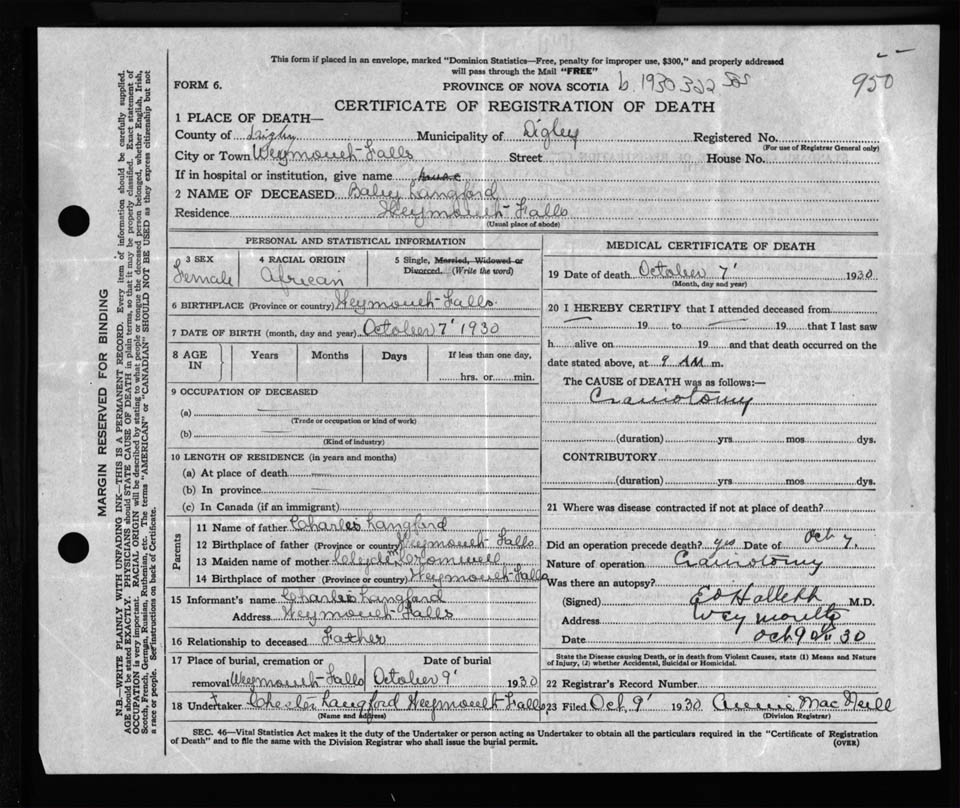 This form if placed in an envelope, marked "Dominion Statistics—Free, penalty for improper use, $300," and properly addressed
will pass through the Mail "FREE"
FORM 6.
PROVINCE OF NOVA SCOTIA b. 1930 322
950
CERTIFICATE OF REGISTRATION OF DEATH
1 PLACE OF DEATH—
County of Digby Municipality of Digby Registered No.
(For use of Registrar General only)
City or Town Weymouth-Falls Street House No.
If in hospital or institution, give name
2 NAME OF DECEASED Baby Langford
Residence Weymouth-Falls
(Usual place of abode)
PERSONAL AND STATISTICAL INFORMATION
3 SEX 4 RACIAL ORIGIN 5 Single, Married, Widowed or
Divorced. (Write the word)
Female African
6 BIRTHPLACE (Province or country) Weymouth-Falls
7 DATE OF BIRTH (month, day and year) October 7' 1930
8 AGE IN Years Months Days If less than one day,
hrs. or min.
9 OCCUPATION OF DECEASED
(a)
(Trade or occupation or kind of work)
(b)
(Kind of industry)
10 LENGTH OF RESIDENCE (in years and months)
(a) At place of death
(b) In province
(c) In Canada (if an immigrant)
Parents
11 Name of father Charles Langford
12 Birthplace of father (Province or country) Weymouth Falls
13 Maiden name of mother Cromwell
14 Birthplace of mother (Province or country) Weymouth-Falls
15 Informant's name Charles Langford
Address Weymouth-Falls
16 Relationship to deceased Father
17 Place of burial, cremation or Date of burial
removal Weymouth-Falls October 9' 1930
18 Undertaker Charles Langford Weymouth-Falls
(Name and address)
MEDICAL CERTIFICATE OF DEATH
19 Date of death October 7' 1930
(Month, day and year)
20 I HEREBY CERTIFY that I attended deceased from
19 to 19 that I last saw
h alive on 19 and that death occurred on the
date stated above, at 9 AM m.
The CAUSE of DEATH was as follows:—
Craniotomy
(duration) yrs mos dys.
CONTRIBUTORY
(duration) yrs mos dys.
21 Where was disease contracted if not at place of death?
Did an operation precede death? yes Date of Oct 7,
Nature of operation Craniotomy
Was there an autopsy?
(Signed) M.D.
Address Weymouth
Date Oct 9 30
State the Disease causing Death, or in death from Violent Causes, state (1) Means and Nature
of Injury, (2) whether Accidental, Suicidal or Homicidal.
22 Registrar's Record Number
23 Filed Oct, 9' 1930 Annie MacNeill
(Division Registrar)
SEC. 46—Vital Statistics Act makes it the duty of the Undertaker or person acting as Undertaker to obtain all the particulars required in the "Certificate of Registration
of Death" and to file the same with the Division Registrar who shall issue the burial permit.
(OVER)
MARGIN RESERVED FOR BINDING
N.B.—WRITE PLAINLY WITH UNFADING INK—THIS IS A PERMANENT RECORD. Every item of information should be carefully supplied.
AGE should be stated EXACTLY. PHYSICIANS should STATE CAUSE OF DEATH in plain terms, so that it may be properly classified. Exact statement of
OCCUPATION is very important. RACIAL ORIGIN will be described by stating to what people or tongue the deceased person belonged, whether English, Irish,
Scotch, French, German, Russian, Ruthenian, etc. The terms "AMERICAN" or "CANADIAN" SHOULD NOT BE USED as they express citizenship but not
a race or people. See instructions on back of Certificate.